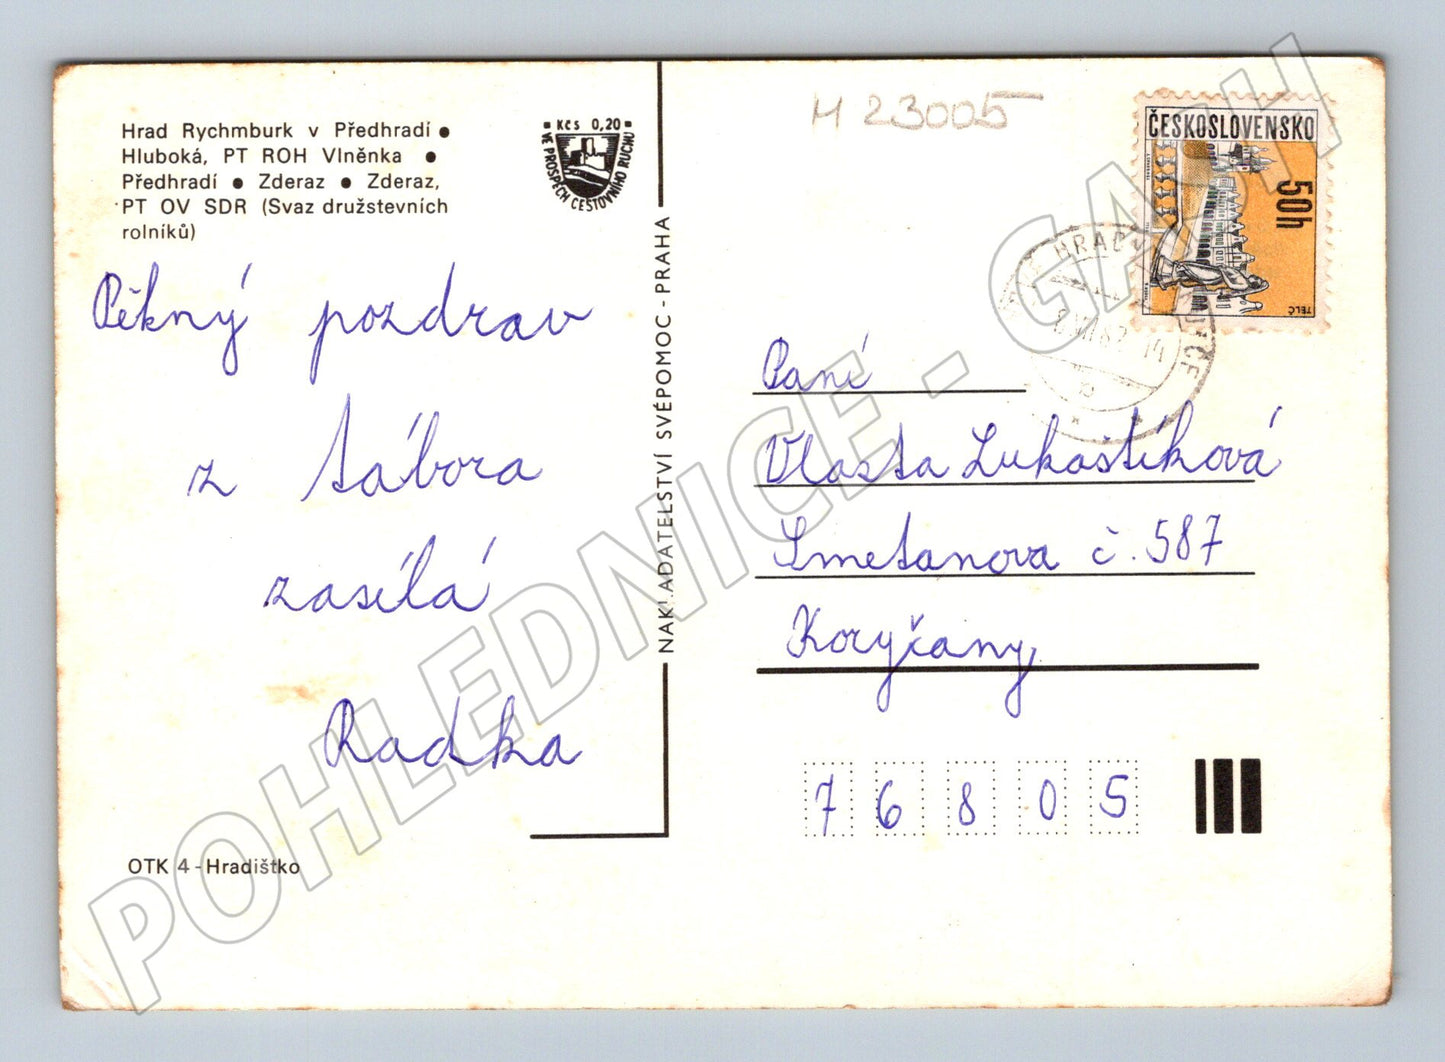 Hrad Rychmburk v Předhradí ●
Hluboká, PT ROH Vlněnka ●
Předhradí ● Zderaz ● Zderaz,
PT OV SDR (Svaz družstevních
rolníků)
Kčs 0,20
VE PROSPĚCH CESTOVNÍHO RUCHU
Pěkný pozdrav
z tábora
zasílá
Radka
OTK 4 - Hradištko
NAKLADATELSTVÍ SVÉPOMOC - PRAHA
M 23005
ČESKOSLOVENSKO
50h
TELČ
Paní
Vlasta Lukaštíková
Smetanova č. 587
Koryčany
76805
POHLEDNICE - GASH